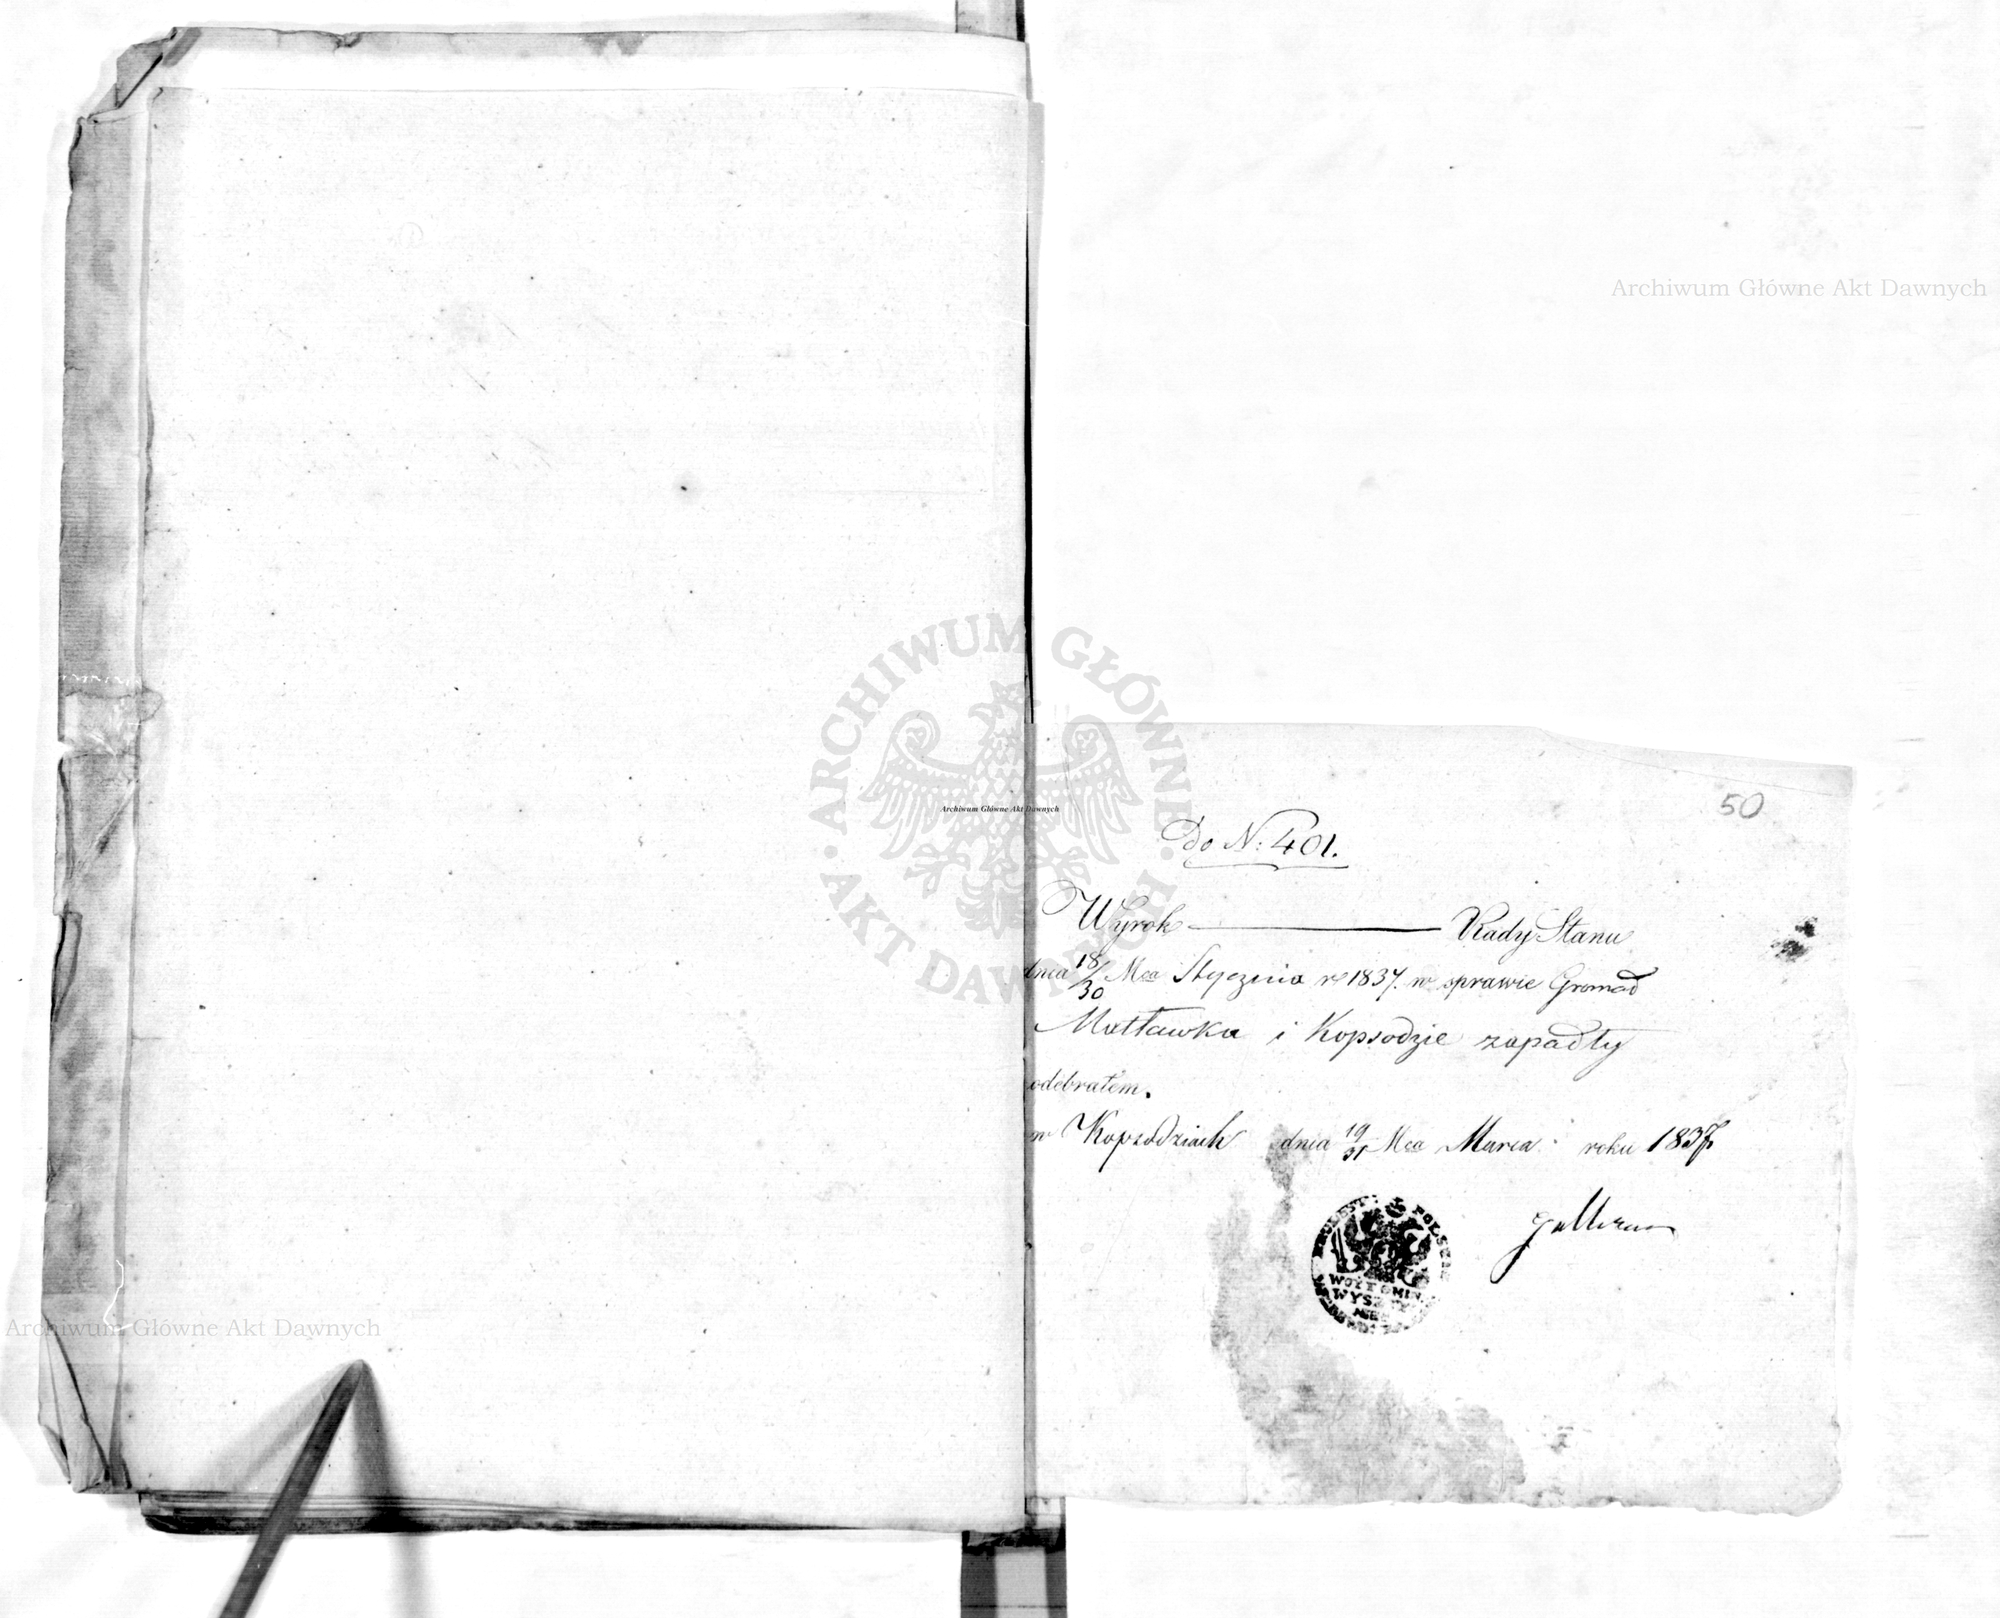 Archiwum Główne Akt Dawnych
ARCHIWUM GŁÓWNE
AKT DAWNYCH
Archiwum Główne Akt Dawnych
50
Do N: 401.
Wyrok Rady Stanu
dnia 18/30 Mca Stycznia r 1837. w sprawie Gromad
Matławka i Kopsodzie zapadły
odebrałem.
w Kopsodziach dnia 19/31 Mca Marca roku 1837
POLSKIE
WOYT GMIN
Archiwum Główne Akt Dawnych